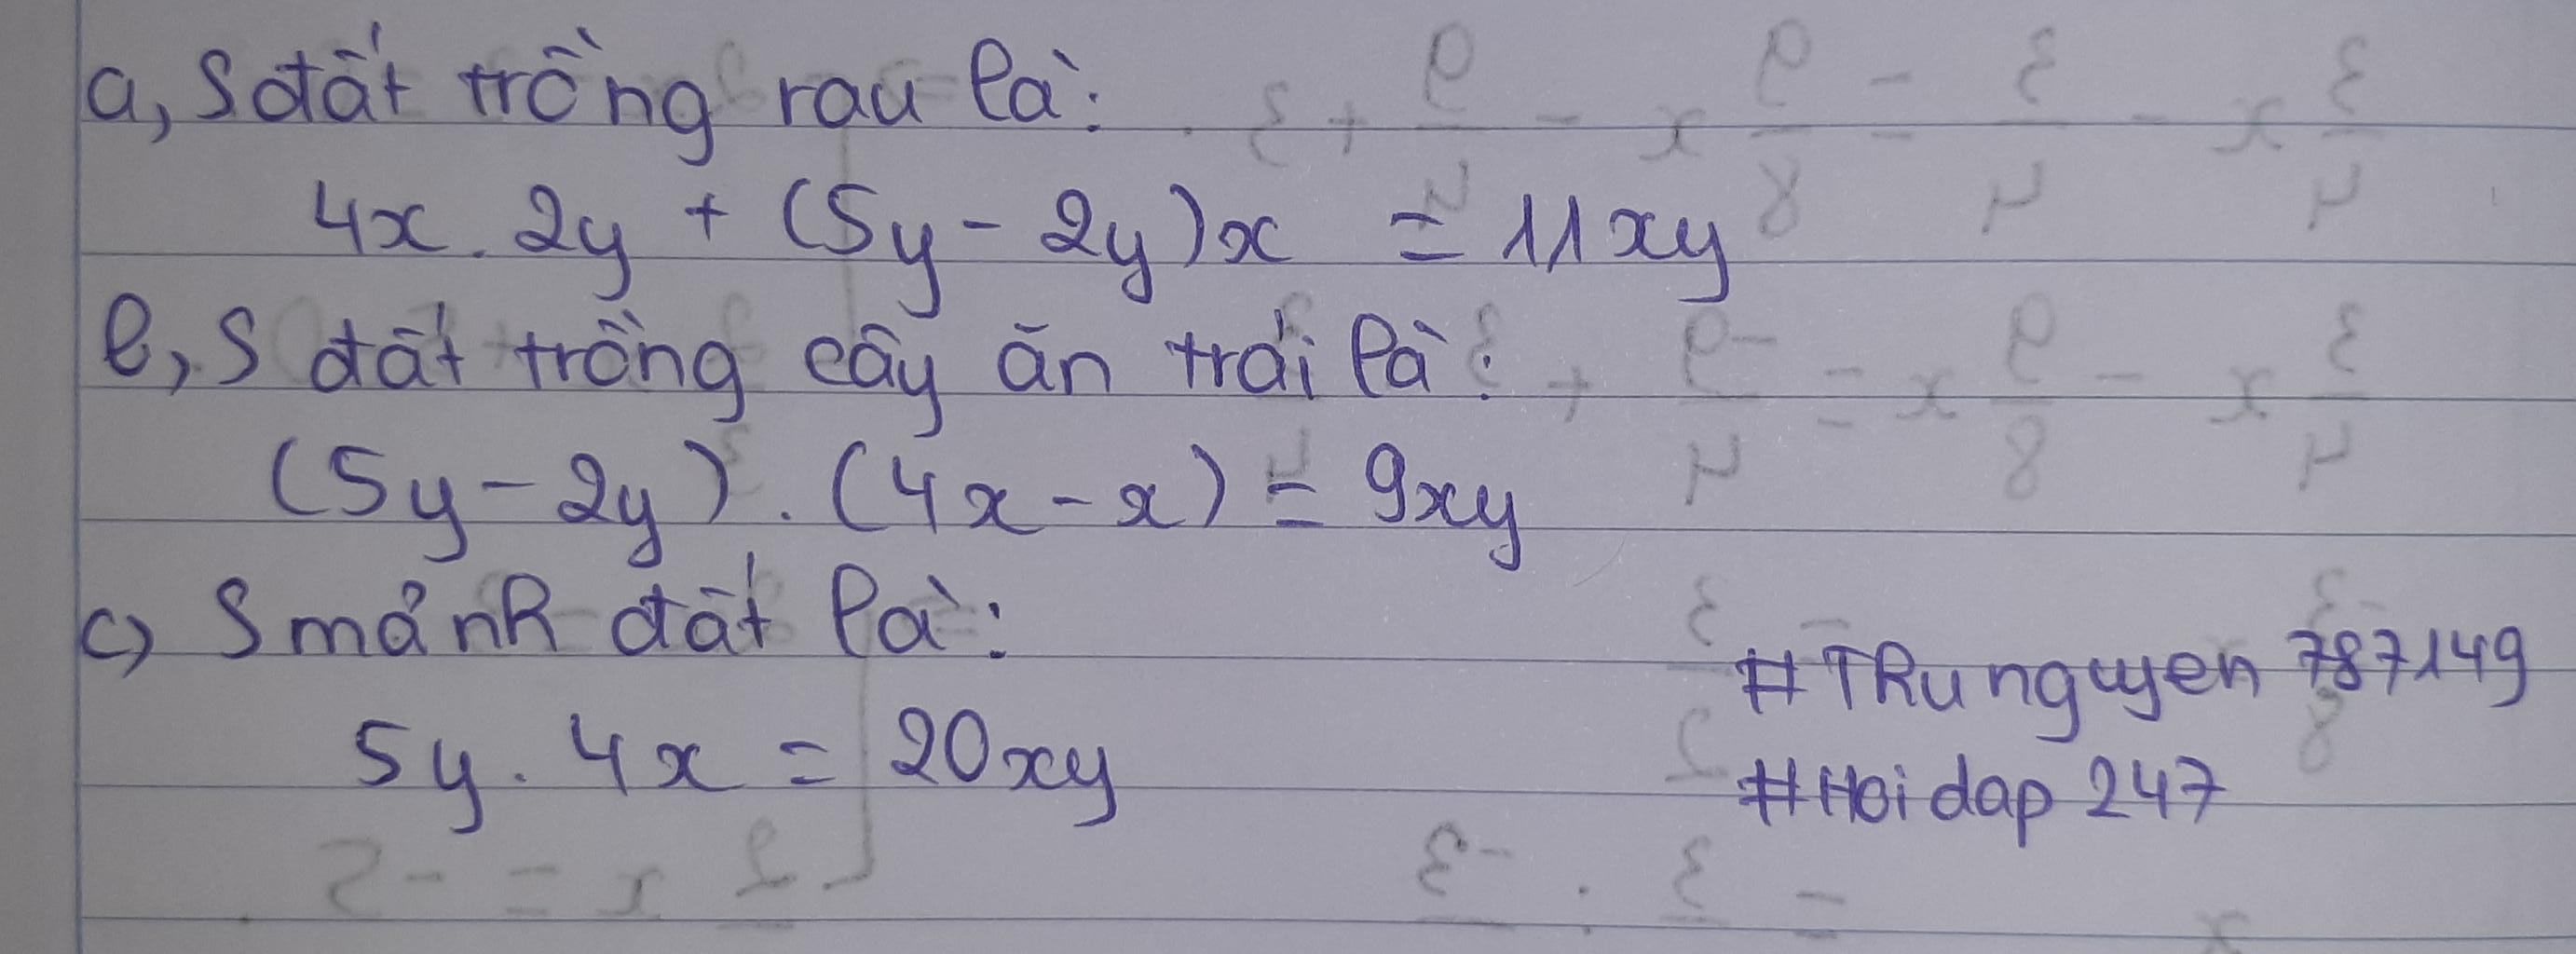 a, S đất trồng rau là:
4x . 2y + (5y - 2y)x = 11xy
b, S đất trồng cây ăn trái là:
(5y - 2y) . (4x - x) = 9xy
c) S mảnh đất là:
5y . 4x = 20xy
#Thunguyen787149
#Hoidap247